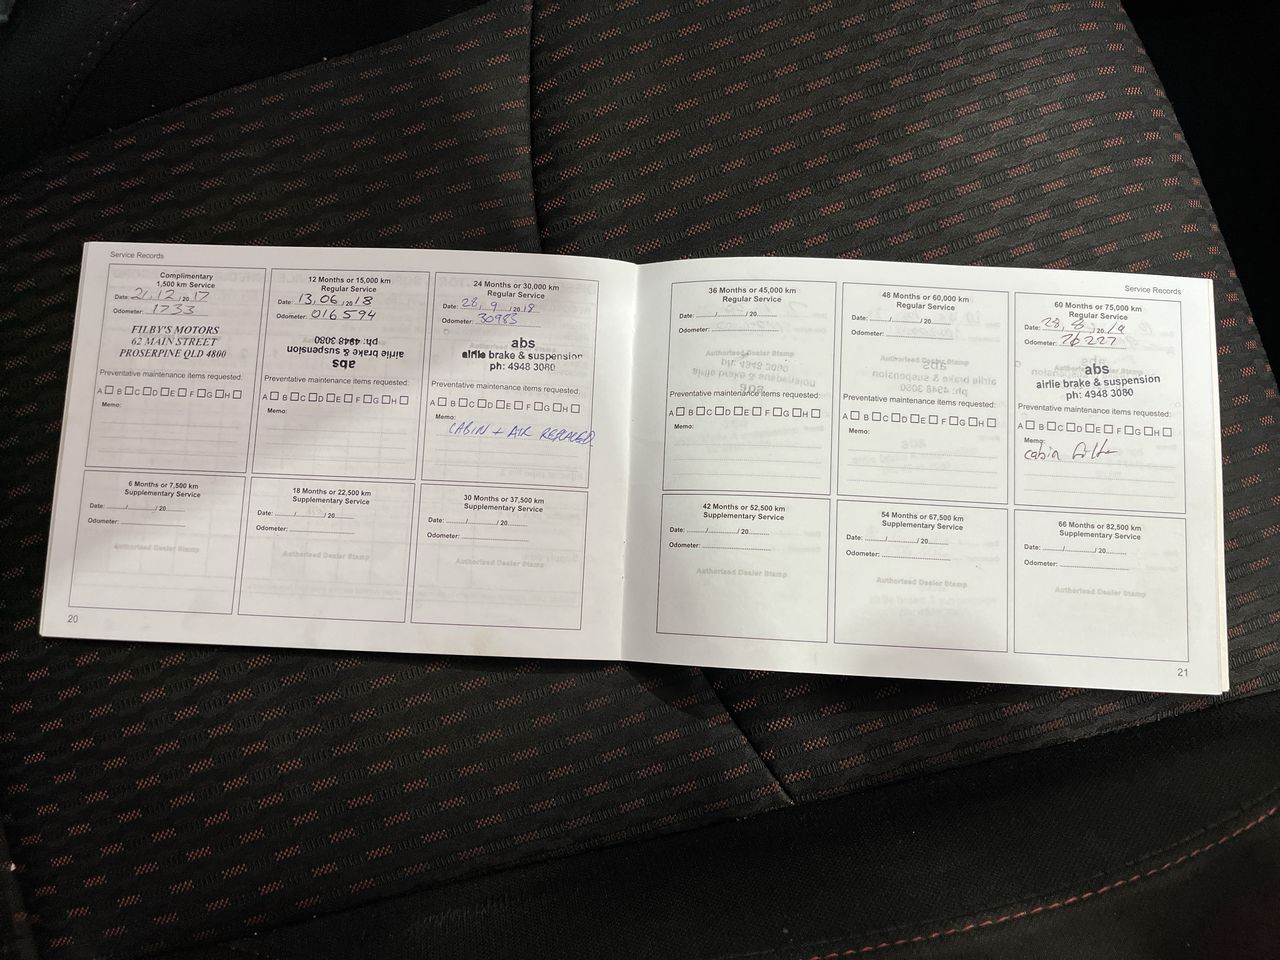 Service Records
Complimentary
1,500 km Service
Date: 21/12/2017
Odometer: 1733
FILBY'S MOTORS
62 MAIN STREET
PROSERPINE QLD 4800
Preventative maintenance items requested:
A B C D E F G H
Memo:
12 Months or 15,000 km
Regular Service
Date: 13/06/2018
Odometer: 016594
abs
airlie brake & suspension
ph: 4948 3080
Preventative maintenance items requested:
A B C D E F G H
Memo:
24 Months or 30,000 km
Regular Service
Date: 28/9/2018
Odometer: 30983
abs
airlie brake & suspension
ph: 4948 3080
Preventative maintenance items requested:
A B C D E F G H
Memo:
CABIN + AIR REPLACED
6 Months or 7,500 km
Supplementary Service
Date: ....../....../20......
Odometer:
Authorised Dealer Stamp
18 Months or 22,500 km
Supplementary Service
Date: ....../....../20......
Odometer:
Authorised Dealer Stamp
30 Months or 37,500 km
Supplementary Service
Date: ....../....../20......
Odometer:
Authorised Dealer Stamp
20
Service Records
36 Months or 45,000 km
Regular Service
Date: ....../....../20......
Odometer:
Authorised Dealer Stamp
Preventative maintenance items requested:
A B C D E F G H
Memo:
48 Months or 60,000 km
Regular Service
Date: ....../....../20......
Odometer:
Authorised Dealer Stamp
Preventative maintenance items requested:
A B C D E F G H
Memo:
60 Months or 75,000 km
Regular Service
Date: 28/8/2019
Odometer: 76227
abs
airlie brake & suspension
ph: 4948 3080
Preventative maintenance items requested:
A B C D E F G H
Memo:
cabin filter
42 Months or 52,500 km
Supplementary Service
Date: ....../....../20......
Odometer:
Authorised Dealer Stamp
54 Months or 67,500 km
Supplementary Service
Date: ....../....../20......
Odometer:
Authorised Dealer Stamp
66 Months or 82,500 km
Supplementary Service
Date: ....../....../20......
Odometer:
Authorised Dealer Stamp
21